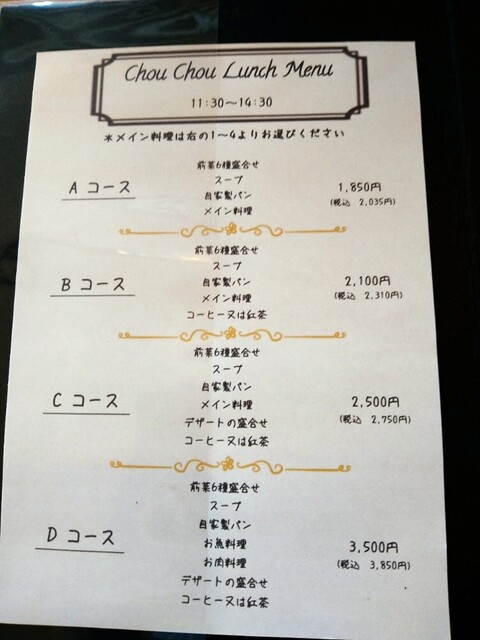 Chou Chou Lunch Menu
11:30～14:30
*メイン料理は右の1～4よりお選びください
A コース
前菜6種盛合せ
スープ
自家製パン
メイン料理
1,850円
(税込 2,035円)
B コース
前菜6種盛合せ
スープ
自家製パン
メイン料理
コーヒー又は紅茶
2,100円
(税込 2,310円)
C コース
前菜6種盛合せ
スープ
自家製パン
メイン料理
デザートの盛合せ
コーヒー又は紅茶
2,500円
(税込 2,750円)
D コース
前菜6種盛合せ
スープ
自家製パン
お魚料理
お肉料理
デザートの盛合せ
コーヒー又は紅茶
3,500円
(税込 3,850円)